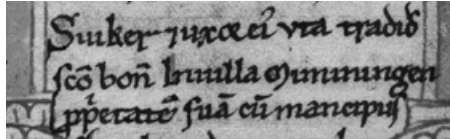 Suiker ⁊ uxor eiꝰ vta tradid̄
sc̄o bon̄ In uilla Munningen
ꝓprietatē suā cū mancipiis